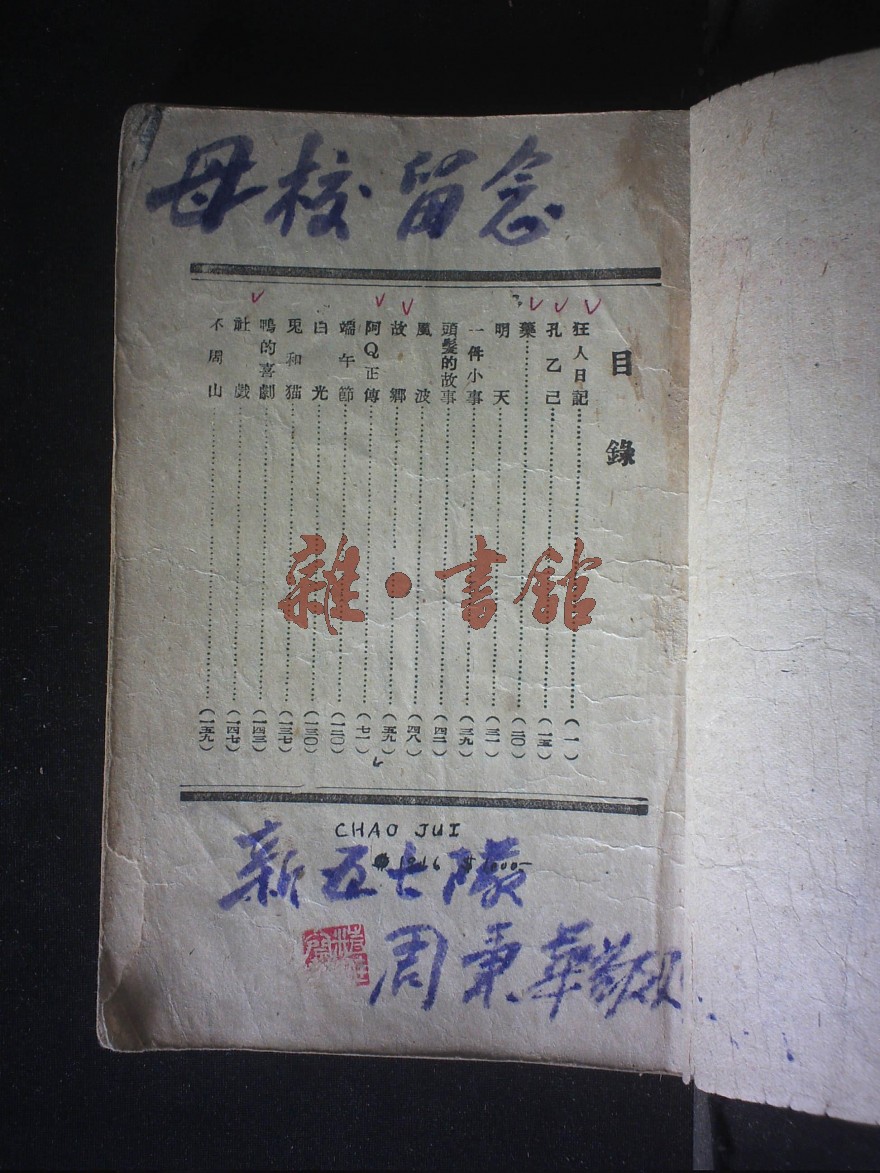 母校留念
目錄
狂人日記………(一)
孔乙己………(一五)
藥………(二〇)
明天………(三一)
一件小事………(三九)
頭髮的故事………(四二)
風波………(四八)
故鄉………(五九)
阿Q正傳………(七一)
端午節………(一二〇)
白光………(一三〇)
兎和猫………(一三七)
鴨的喜劇………(一四三)
社戲………(一四七)
不周山………(一五九)
雜·書舘
CHAO JUI
新五七隊
周秉華